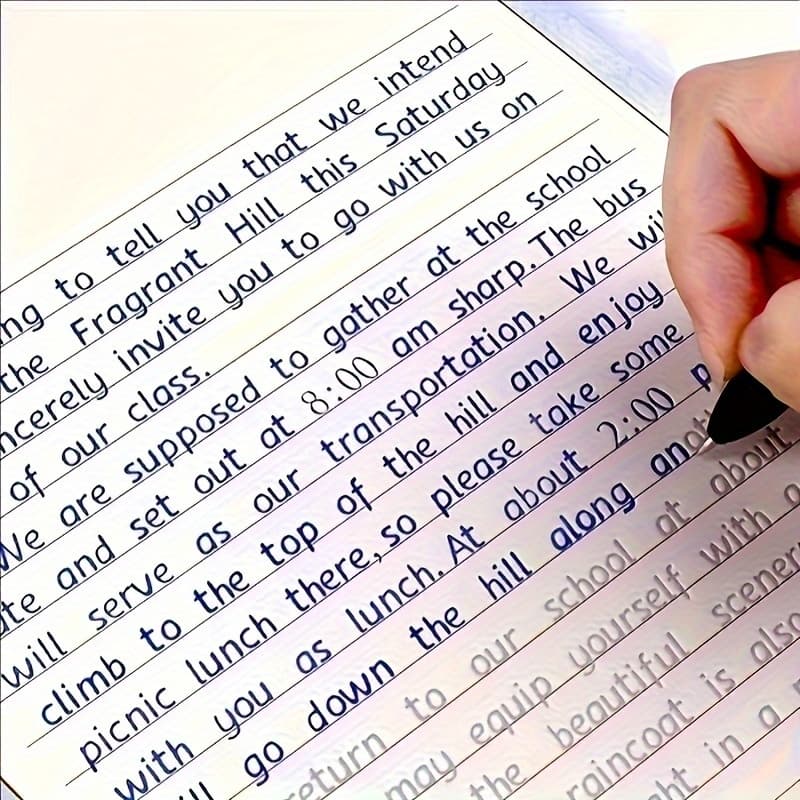 ng to tell you that we intend
the Fragrant Hill this Saturday
ncerely invite you to go with us on
of our class.
We are supposed to gather at the school
te and set out at 8:00 am sharp. The bus
will serve as our transportation. We wil
climb to the top of the hill and enjoy
picnic lunch there, so please take some
with you as lunch. At about 2:00 p
ll go down the hill along anot
eturn to our school at about
may equip yourself with a
the beautiful scener
raincoat is also
ht in a